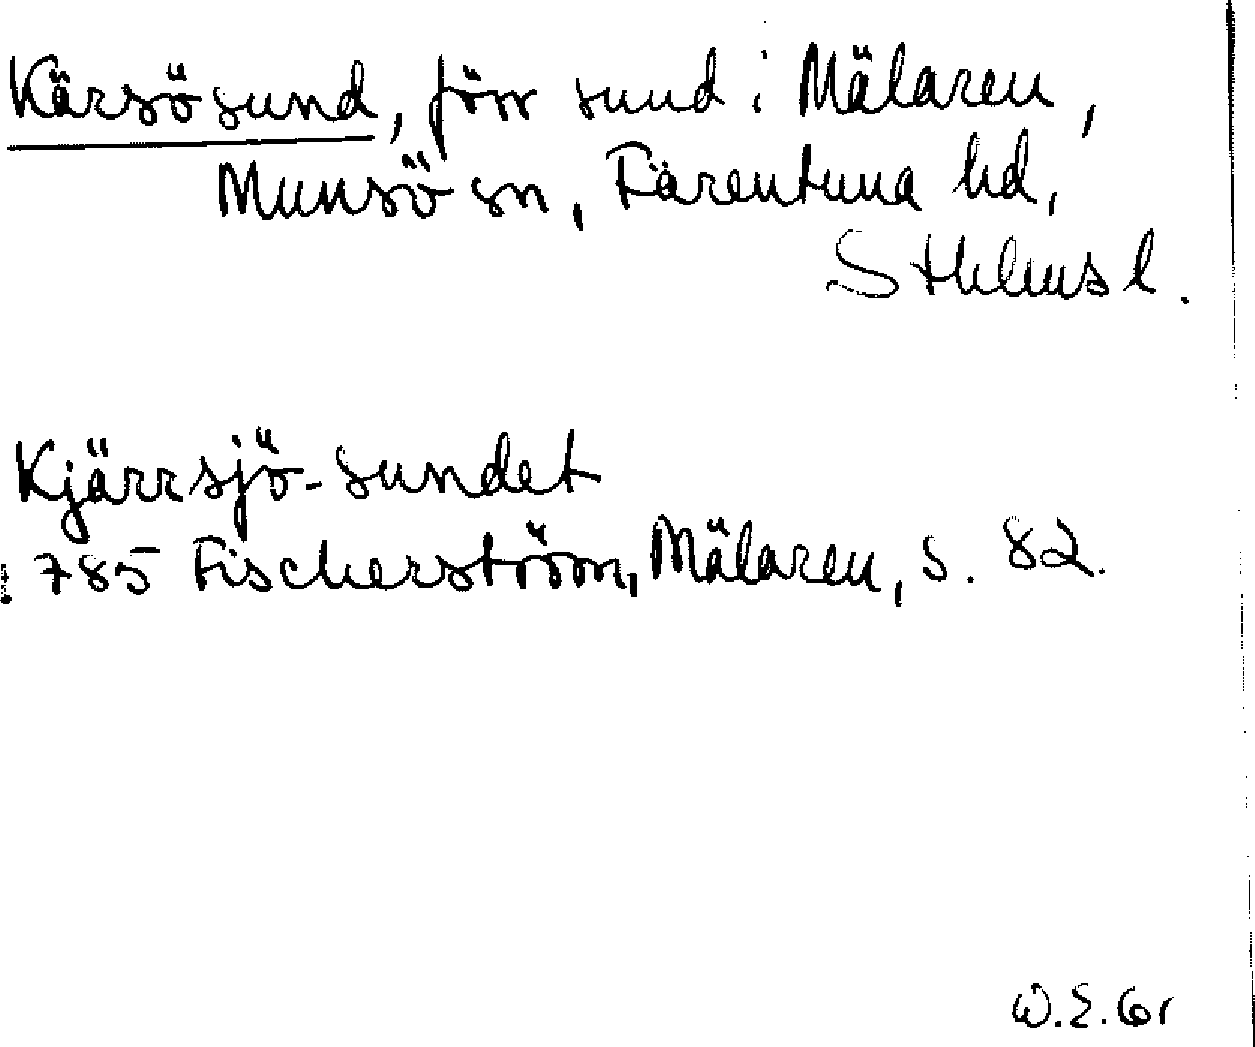 Kärsösund, förr sund i Mälaren,
Munsö sn, Färentuna hd,
Sthlms l.
Kjärrsjö-sundet
785 Fischerström, Mälaren, s. 82.
W.E. Gr